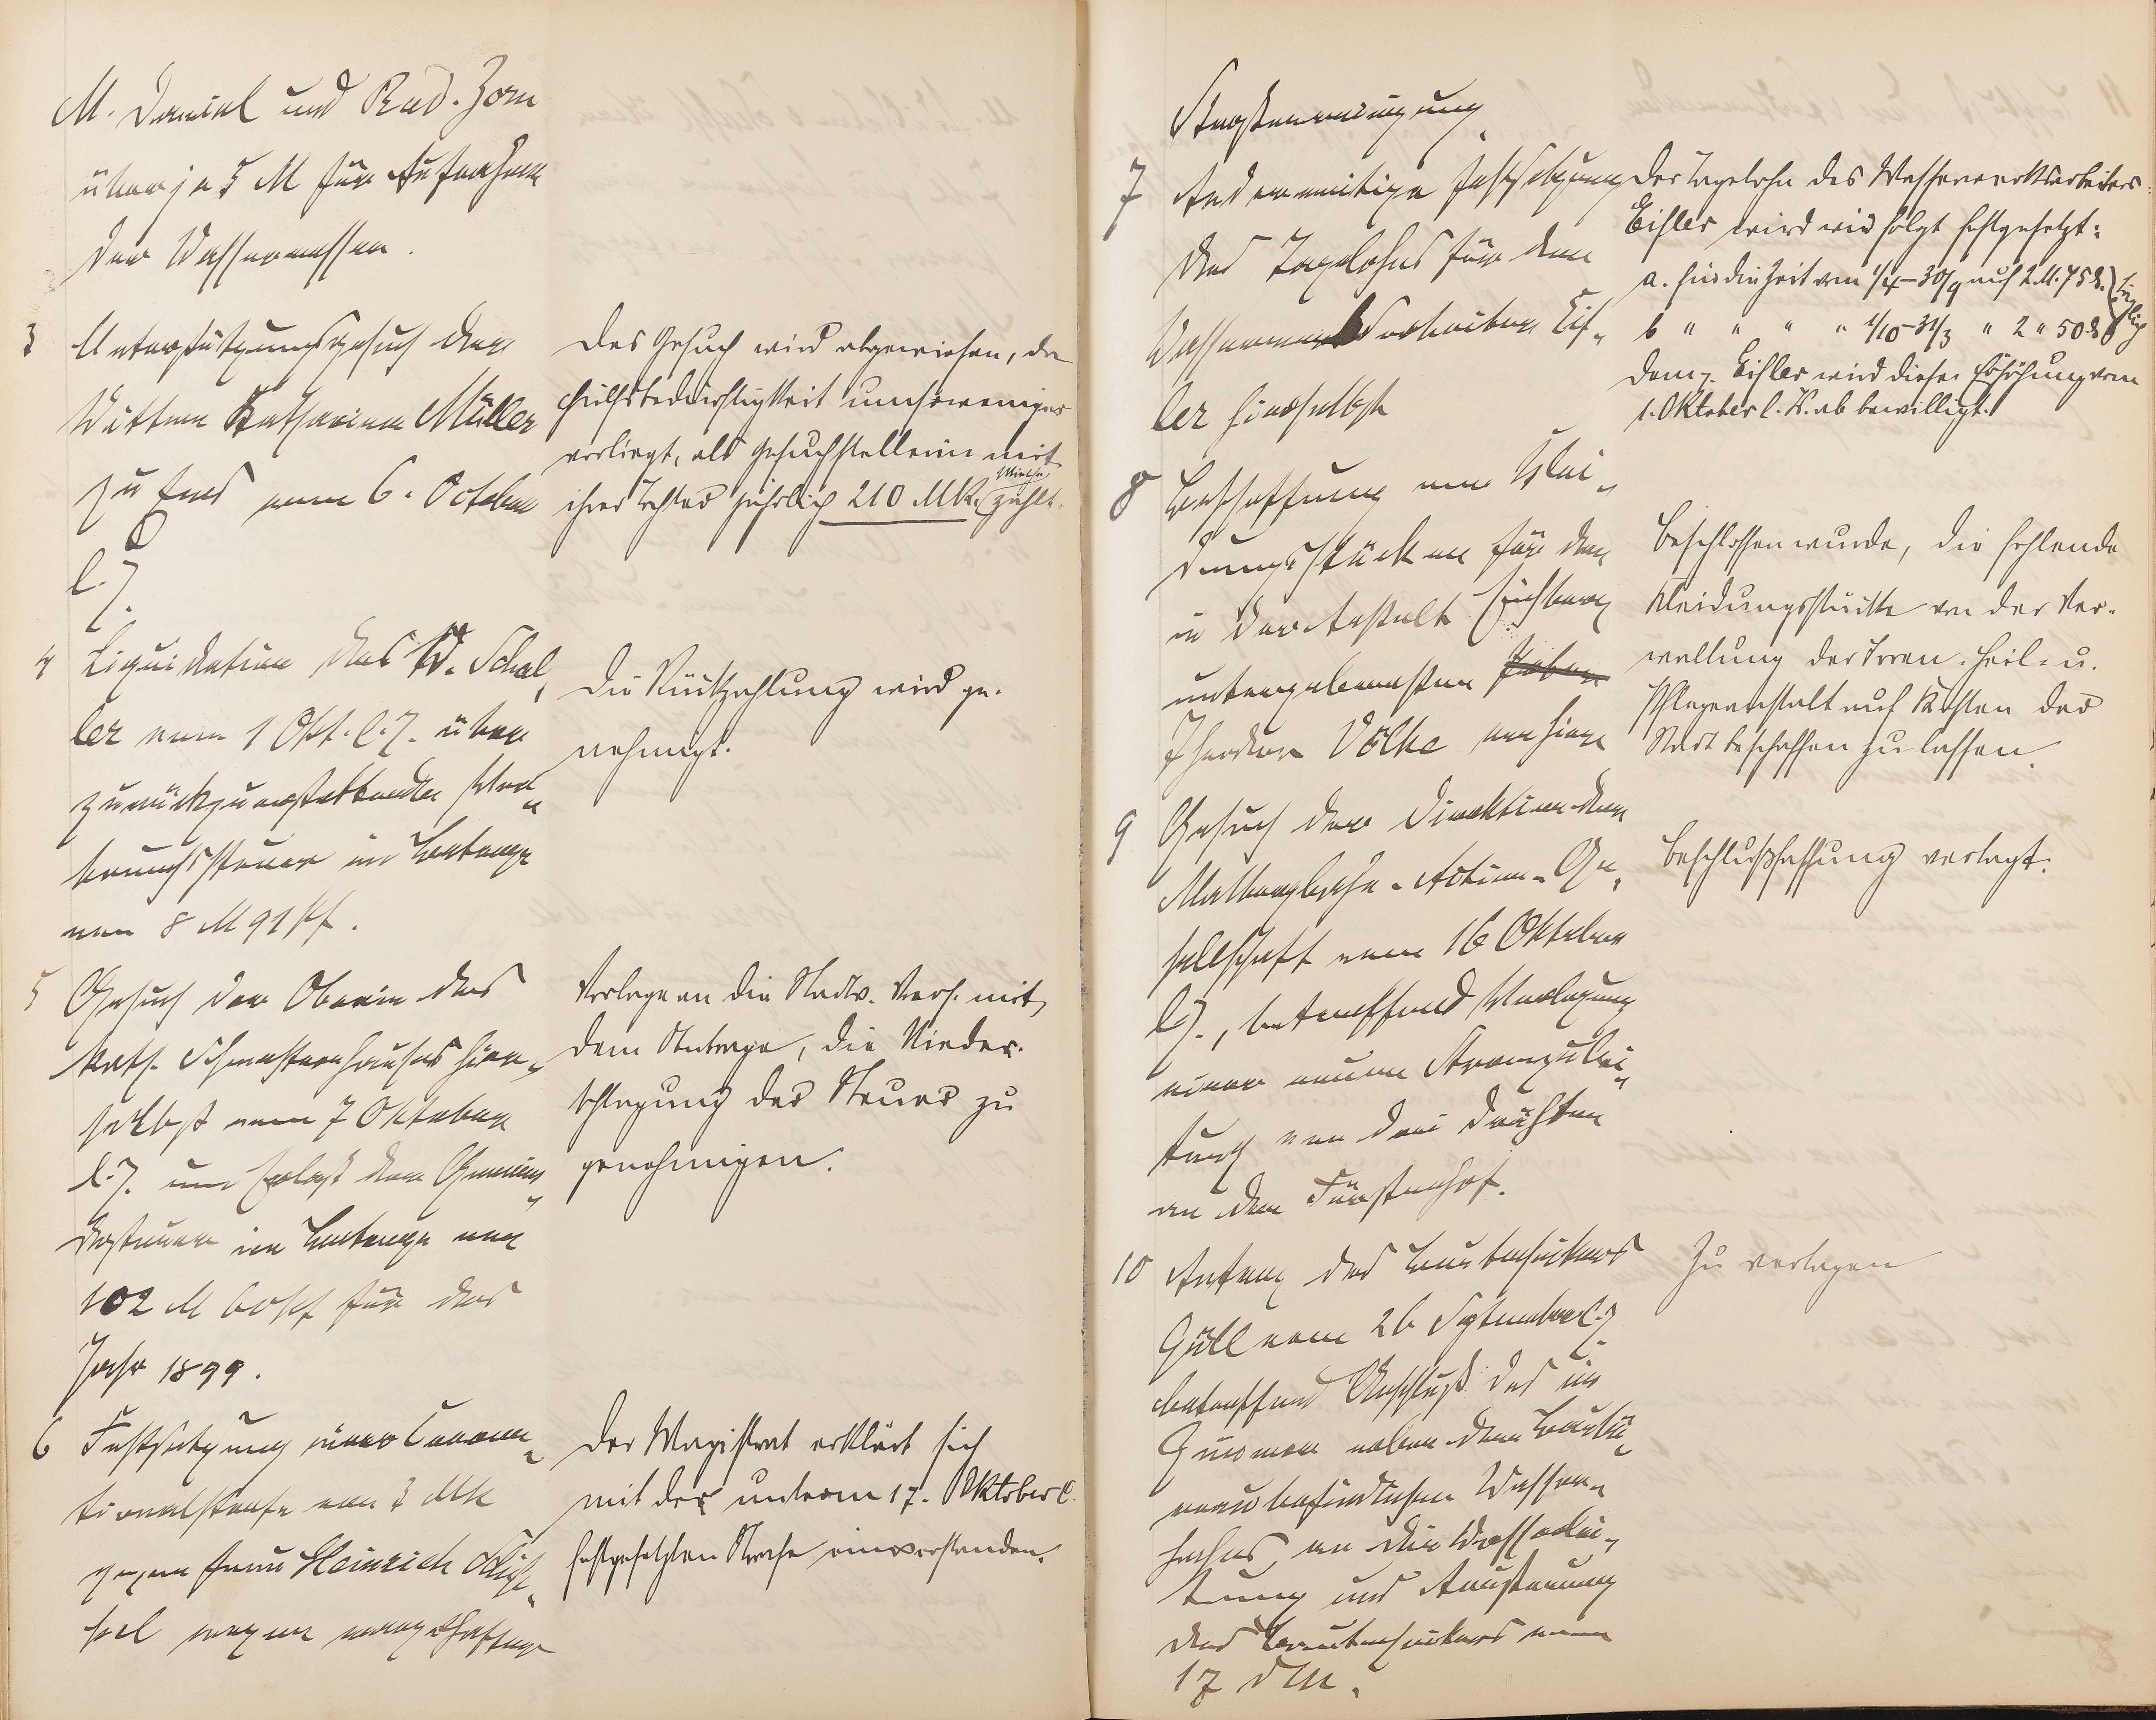 M. Daniel und Rud. Zorn
über je 5 M für Aufnahme
der Wassermesser.
3 Unterstützungsgesuch der
Wittwe Katharina Müller
zu Ems vom 6. October
l. J.
Das Gesuch wird abgewiesen, da
Hülfsbedürftigkeit umsoweniger
vorliegt, als Gesuchstellerin mit
ihrer Tochter jährlich 210 MK. Miethe zahlt.
4 Liquidation des W. Schal„
ler vom 1 Okt. l. J. über
zurückzuerstattende
im Betrage
von 8 M 91 Pf.
Die Rückzahlung wird ge-
nehmigt.
5 Gesuch der Oberin des
kath. Schwesternhauses hier„
selbst vom 7 Oktober
l. J. um Erlaß der Gemein„
desteuer im Betrage von
102 M 60 Pf für das
Jahr 1899.
Vorlage an die Stadtv. Vers. mit
dem Antrage, die Nieder-
schlagung der Steuer zu
genehmigen.
6 Festsetzung einer Conven„
tionalstrafe von 3 Mk
gegen Frau Heinrich
wegen mangelhafter
Der Magistrat erklärt sich
mit der unterm 17. Oktober l.
festgesetzten Strafe einverstanden.
Straßenreinigung
7 Anderweitige Festsetzung
des Tagelohns für den
Wasserwerksarbeiter Eif„
ler hierselbst
Der Tagelohn des Wasserwerksarbeiters
Eifler wird wie folgt festgesetzt:
a. für die Zeit vom 1/4–30/9 auf 2 M. 75 ₰.
b " " " " 1/10–31/3 " 2 " 50 ₰
Dem p. Eifler wird diese Erhöhung vom
1. Oktober l. Js. ab bewilligt.
8 Beschaffung von Klei„
dungsstücken für den
in der Anstalt Eichberg
untergebrachten
Theodor Völke von hier
Beschlossen wurde, die fehlende
Kleidungsstücke von der Ver-
waltung der Irren-Heil- u.
Pflegeanstalt auf Kosten der
Stadt beschaffen zu lassen.
9 Gesuch der Direktion der
Malbergbahn-Actien-Ge„
sellschaft vom 16 Oktober
l. J., betreffend Verlegung
einer neuen Stromzulei„
tung von drei Drähten
an den Fürstenhof.
Beschlußfassung vertagt.
10 Antrag des Bautechnikers
Güll vom 26 September l. J.
betreffend Anschluß des im
neben dem
befindlichen Wasser„
an die Wasserlei„
tung und Aeußerung
des Bautechnikers vom
17 d M.
Zu vertagen